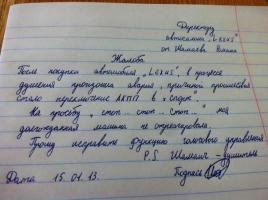 Директору
автосалона „LEXUS"
от Шамаева Вилита
Жалоба
После покупки автомобиля „LEXUS", в процессе
движения произошла авария, причиной происшествия
стало переключение АКПП в „спорт".
На просьбу „стоп... стоп... стоп..." моя
долгожданная машина не отреагировала.
Прошу исправить функцию голосового управления
P.S. Шаманг - душитель
Дата 15.01.13. Подпись